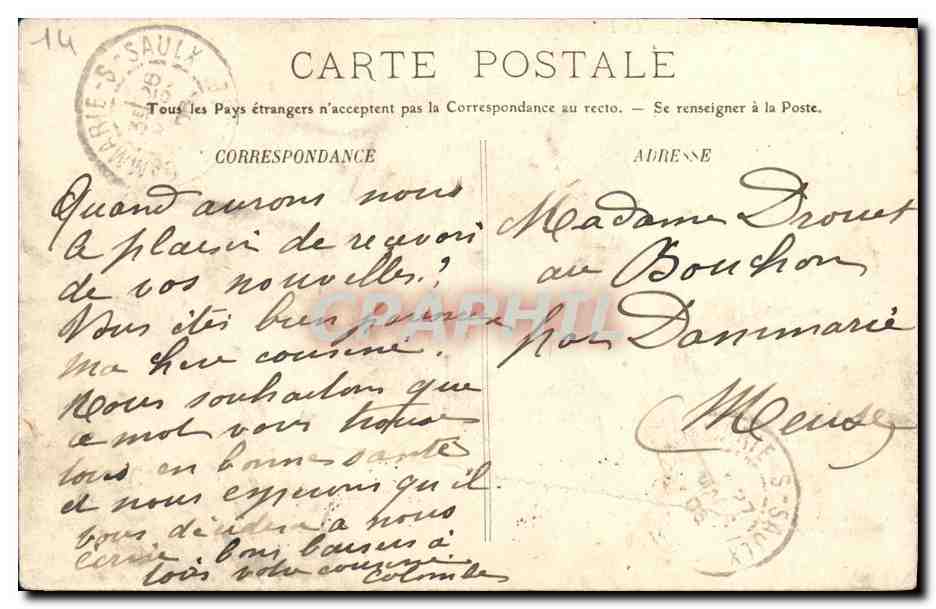 14
MARIE-S-SAULX
CARTE POSTALE
Tous les Pays étrangers n'acceptent pas la Correspondance au recto. — Se renseigner à la Poste.
CORRESPONDANCE
Quand aurons nous
le plaisir de recevoir
de vos nouvelles ?
Vous êtes bien paresseux
ma chere cousine.
Nous souhaitons que
ce mot vous trouve
tous en bonne santé
et nous esperons qu'il
vous decidera a nous
ecrire. bons baisers à
tous votre cousine
Colombe
ADRESSE
Madame Drouet
au Bouchon
par Dammarie
Meuse
MARIE-S-SAULX
27
06
CPAPHIL